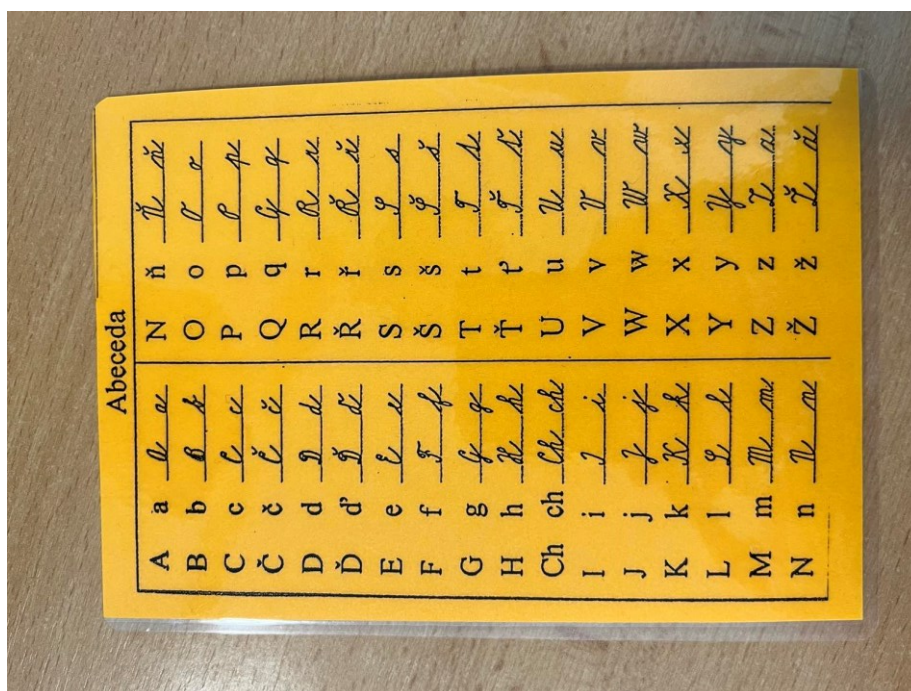 Abeceda
A a A a
B b B b
C c C c
Č č Č č
D d D d
Ď ď Ď ď
E e E e
F f F f
G g G g
H h H h
Ch ch Ch ch
I i I i
J j J j
K k K k
L l L l
M m M m
N n N n
N ň Ň ň
O o O o
P p P p
Q q Q q
R r R r
Ř ř Ř ř
S s S s
Š š Š š
T t T t
Ť ť Ť ť
U u U u
V v V v
W w W w
X x X x
Y y Y y
Z z Z z
Ž ž Ž ž